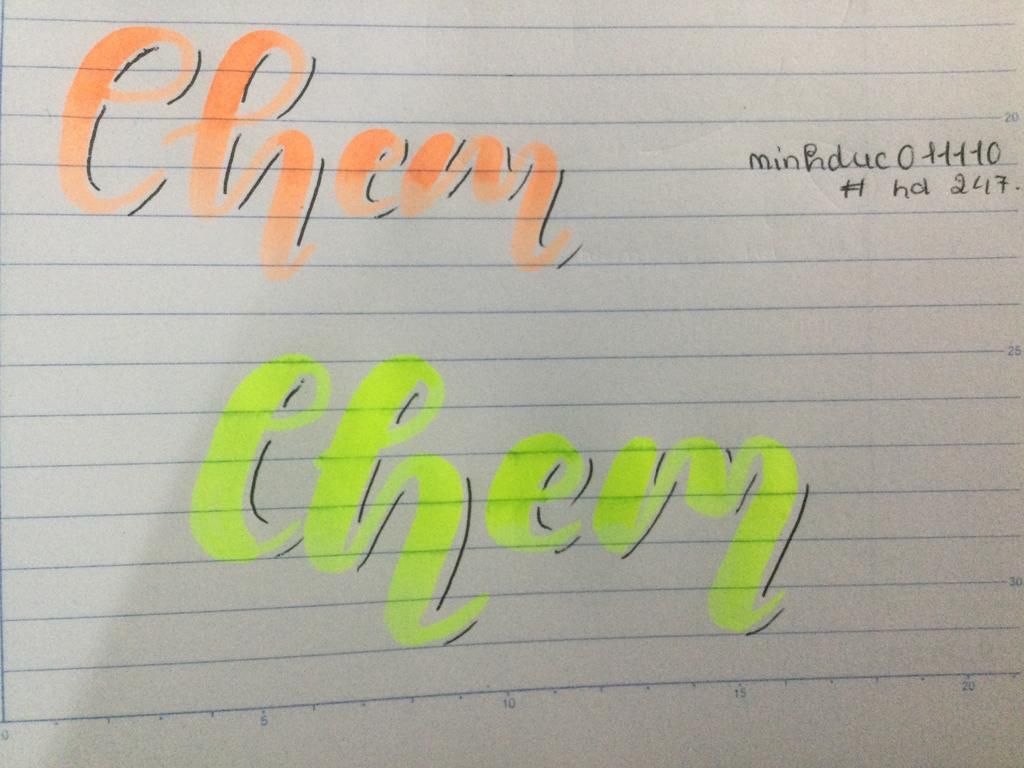 Chem
minhduc011110
# hd 247.
Chem
20
25
30
0 5 10 15 20